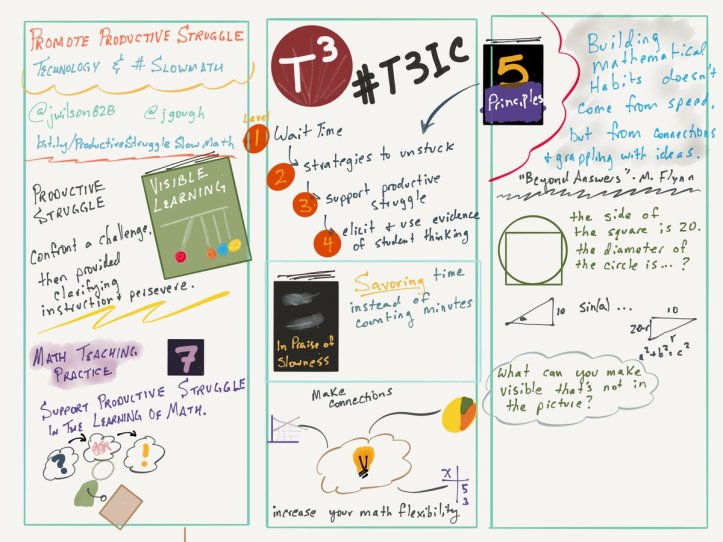 PROMOTE PRODUCTIVE STRUGGLE
TECHNOLOGY & # SLOWMATH
@jwilson828 @jgough
bit.ly/ProductiveStruggleSlowMath
PRODUCTIVE
STRUGGLE
VISIBLE
LEARNING
Confront a challenge,
then provided
clarifying
instruction & persevere.
MATH TEACHING
PRACTICE
7
SUPPORT PRODUCTIVE STRUGGLE
IN THE LEARNING OF MATH.
?
!
T3
#T3IC
Level
1
Wait Time
2
strategies to unstuck
3
support productive
struggle
4
elicit & use evidence
of student thinking
In Praise of
Slowness
Savoring time
instead of
counting minutes
Make
connections
X
5
3
increase your math flexibility
5
Principles
Building
mathematical
Habits doesn't
come from speed,
but from connections
& grappling with ideas.
"Beyond Answers" - M. Flynn
the side of
the square is 20.
the diameter of
the circle is...?
a
10
sin(a) ...
10
20
r
a²+b²=c²
What can you make
visible that's not in
the picture?